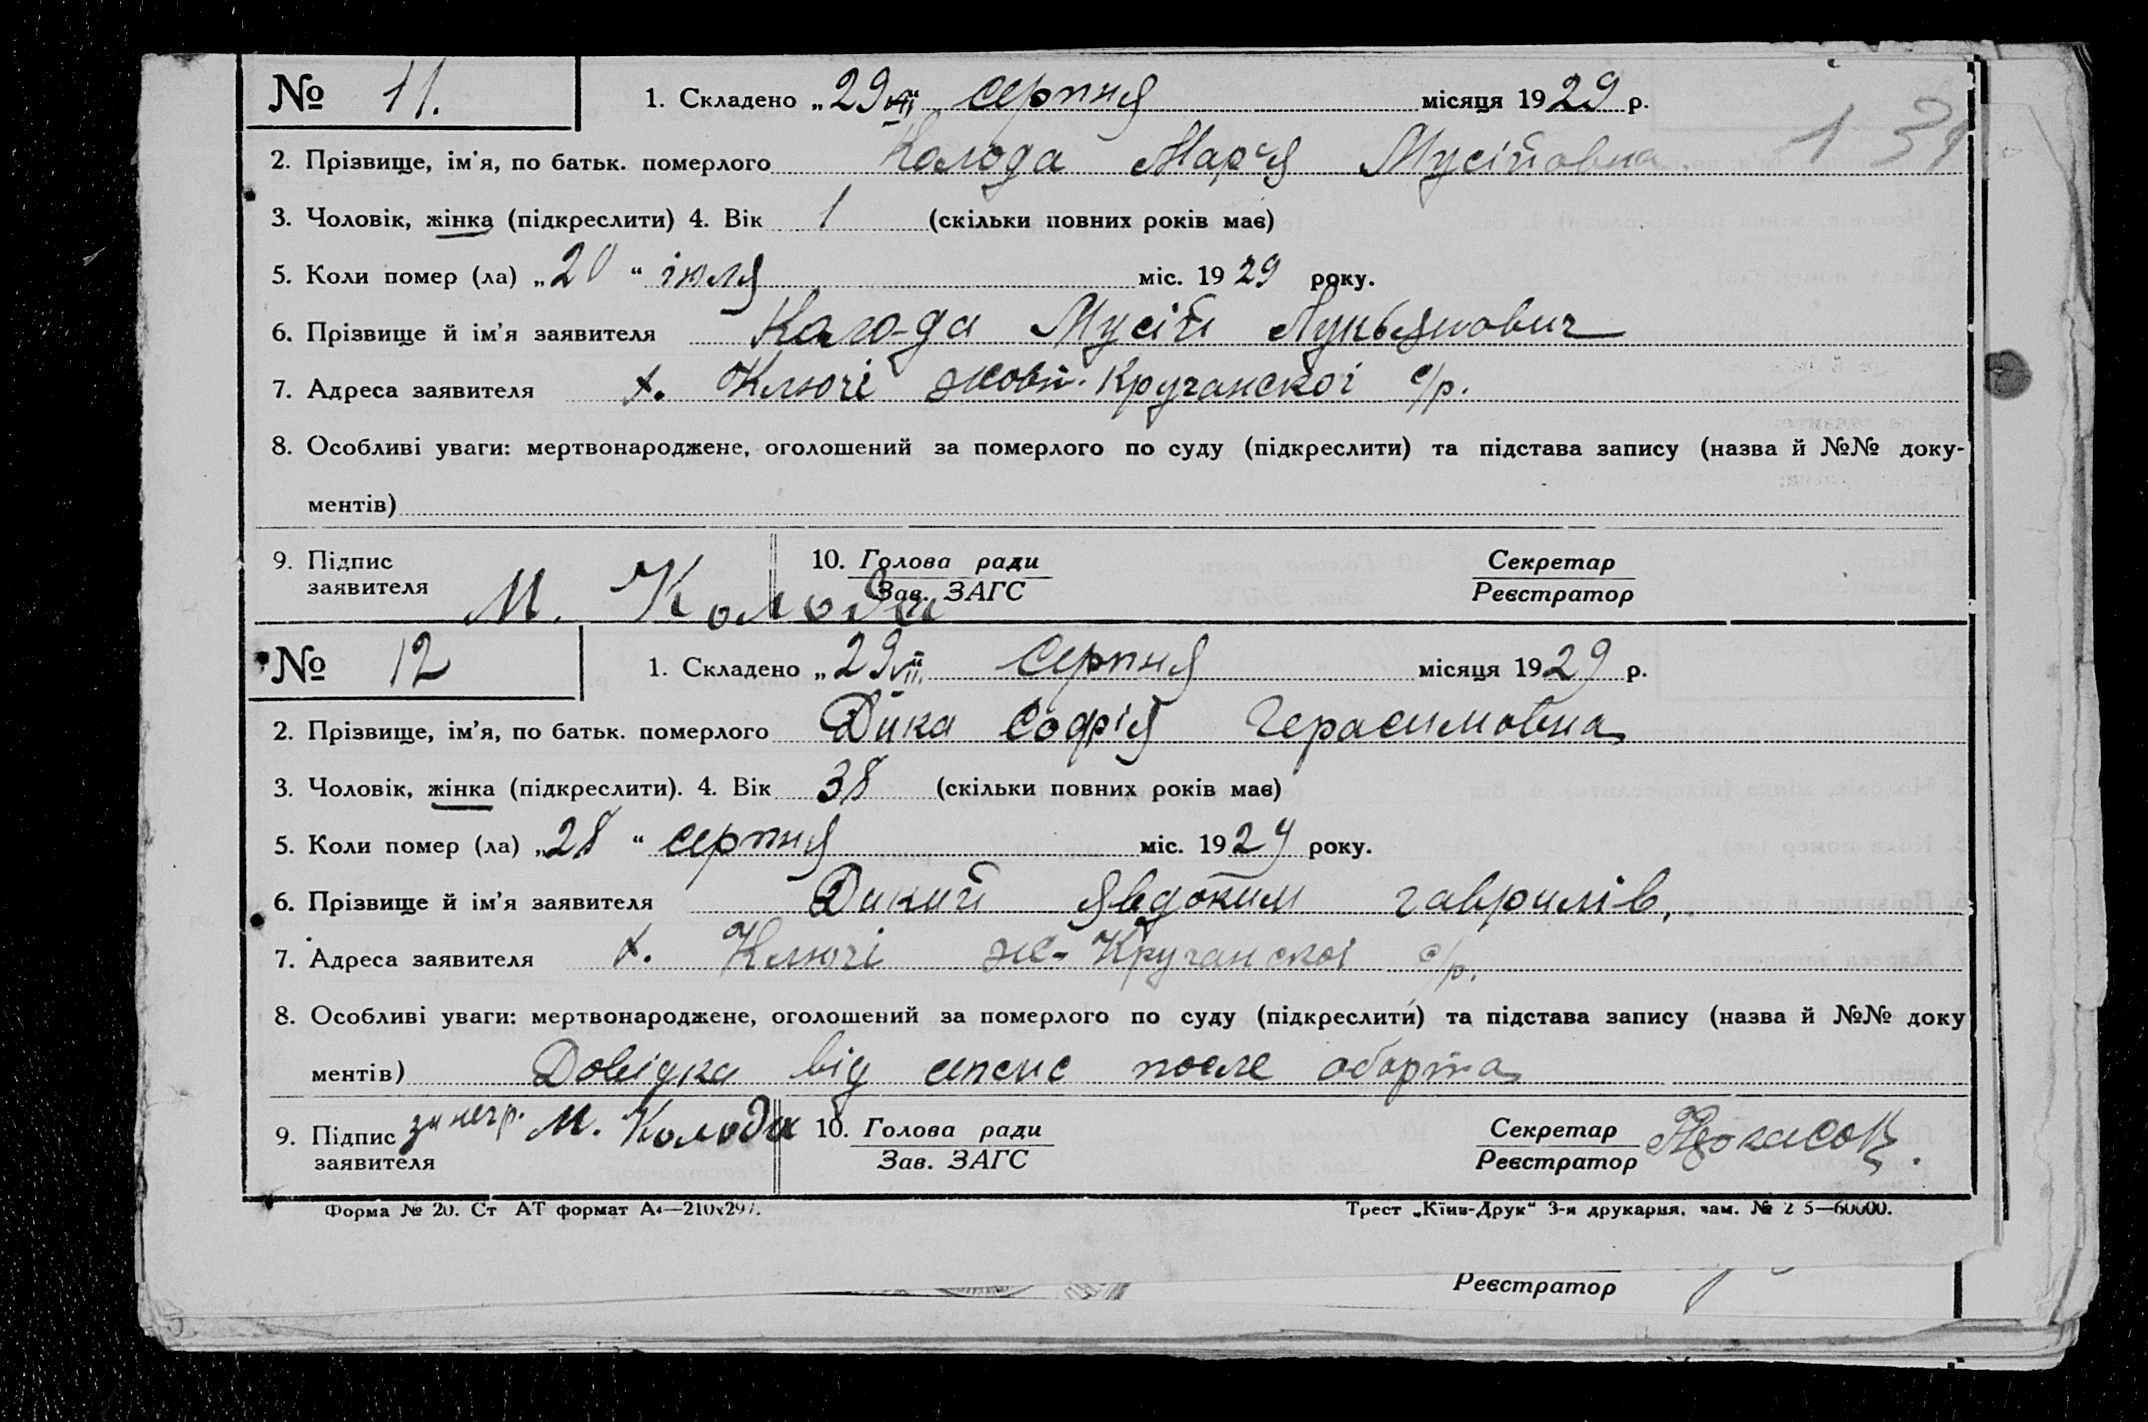 № 11. 1. Складено „29" серпня місяця 1929 р.
2. Прізвище, ім'я, по батьк. померлого Колода Мар'я Мусіївна 1 31
3. Чоловік, жінка (підкреслити) 4. Вік 1 (скільки повних років має)
5. Коли помер (ла) „20" июля міс. 1929 року.
6. Прізвище й ім'я заявителя Колода Мусій Лукьянович
7. Адреса заявителя х. Ключі жовт. Круганскоі с/р.
8. Особливі уваги: мертвонароджене, оголошений за померлого по суду (підкреслити) та підстава запису (назва й №№ доку-
ментів)
9. Підпис заявителя М. Колода 10. Голова ради Зав. ЗАГС Секретар Реєстратор
№ 12 1. Складено „29" серпня місяця 1929 р.
2. Прізвище, ім'я, по батьк. померлого Дика Софія Герасимовна
3. Чоловік, жінка (підкреслити). 4. Вік 38 (скільки повних років має)
5. Коли помер (ла) „28" серпня міс. 1929 року.
6. Прізвище й ім'я заявителя Дикий Явдоким гаврилів,
7. Адреса заявителя х. Ключі ж-Круганскоі с/р.
8. Особливі уваги: мертвонароджене, оголошений за померлого по суду (підкреслити) та підстава запису (назва й №№ доку
ментів) Довідка від сепсис после аборта
9. Підпис заявителя за негр. М. Колода 10. Голова ради Зав. ЗАГС Секретар Реєстратор
Форма № 20. Ст АТ формат А4—210х297. Трест „Київ-Друк" 3-я друкарня, зам. № 2 5—60000.
Реєстратор